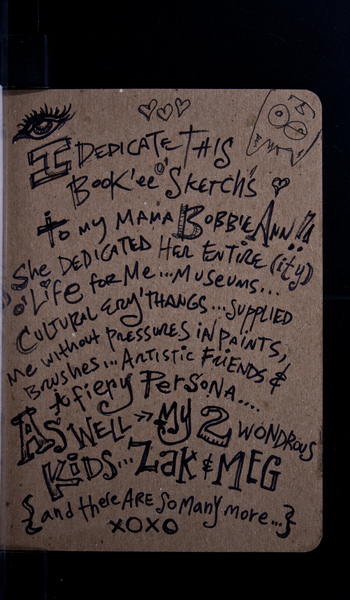 I DEDICATE THIS
BOOK'ee O' SKETCH'S
to my MAMA BOBBIE ANN!!
She DEDICATED HER ENTIRE (ity)
o' Life for Me... Museums...
CULTURAL ERY'THANGS... SUPPLIED
Me without PRESSURES IN PAINTS,
BRUSHES... ARTISTIC FRIENDS &
A fiery PERSONA....
AS WELL => My 2 WONDROUS
KIDS... ZAK & MEG
{and there ARE So Many more...}
XOXO